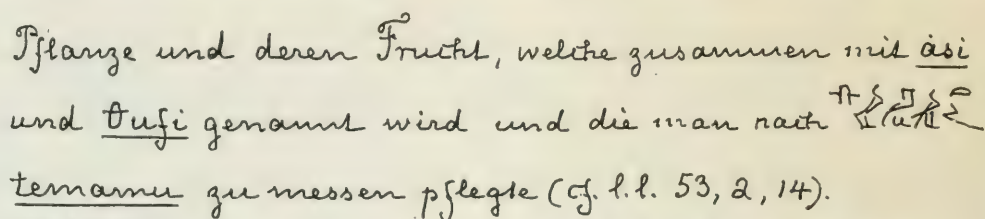 Pflanze und deren Frucht, welche zusammen mit àsi
und θufi genannt wird und die man nach
temamu zu messen pflegte (cf. l.l. 53, 2, 14).